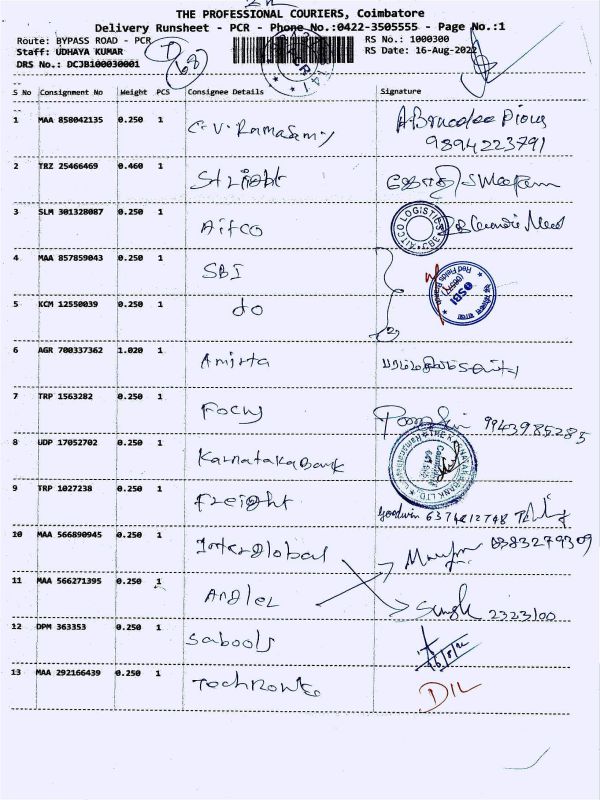 THE PROFESSIONAL COURIERS, Coimbatore
Delivery Runsheet - PCR - Phone No.:0422-3505555 - Page No.:1
Route: BYPASS ROAD - PCR RS No.: 1000300
Staff: UDHAYA KUMAR RS Date: 16-Aug-2022
DRS No.: DCJB100030001 68
S No Consignment No Weight PCS Consignee Details Signature
1 MAA 858042135 0.250 1 C.V. Ramasamy
9894223791
2 TRZ 25466469 0.460 1 St Light
3 SLM 301328087 0.250 1 Aitco AITCO LOGISTICS
4 MAA 857859043 0.250 1 SBI SBI
5 KCM 12550039 0.250 1 do
6 AGR 700337362 1.020 1 Amirta
7 TRP 1563282 0.250 1 Focus 9943985285
8 UDP 17052702 0.250 1 Karnataka Bank
9 TRP 1027238 0.250 1 Freight
Goodwin 6374212748
10 MAA 566890945 0.250 1 Interglobal 8383279309
11 MAA 566271395 0.250 1 Angler Singh 2323100
12 DPM 363353 0.250 1 Sabools
13 MAA 292166439 0.250 1 DIL